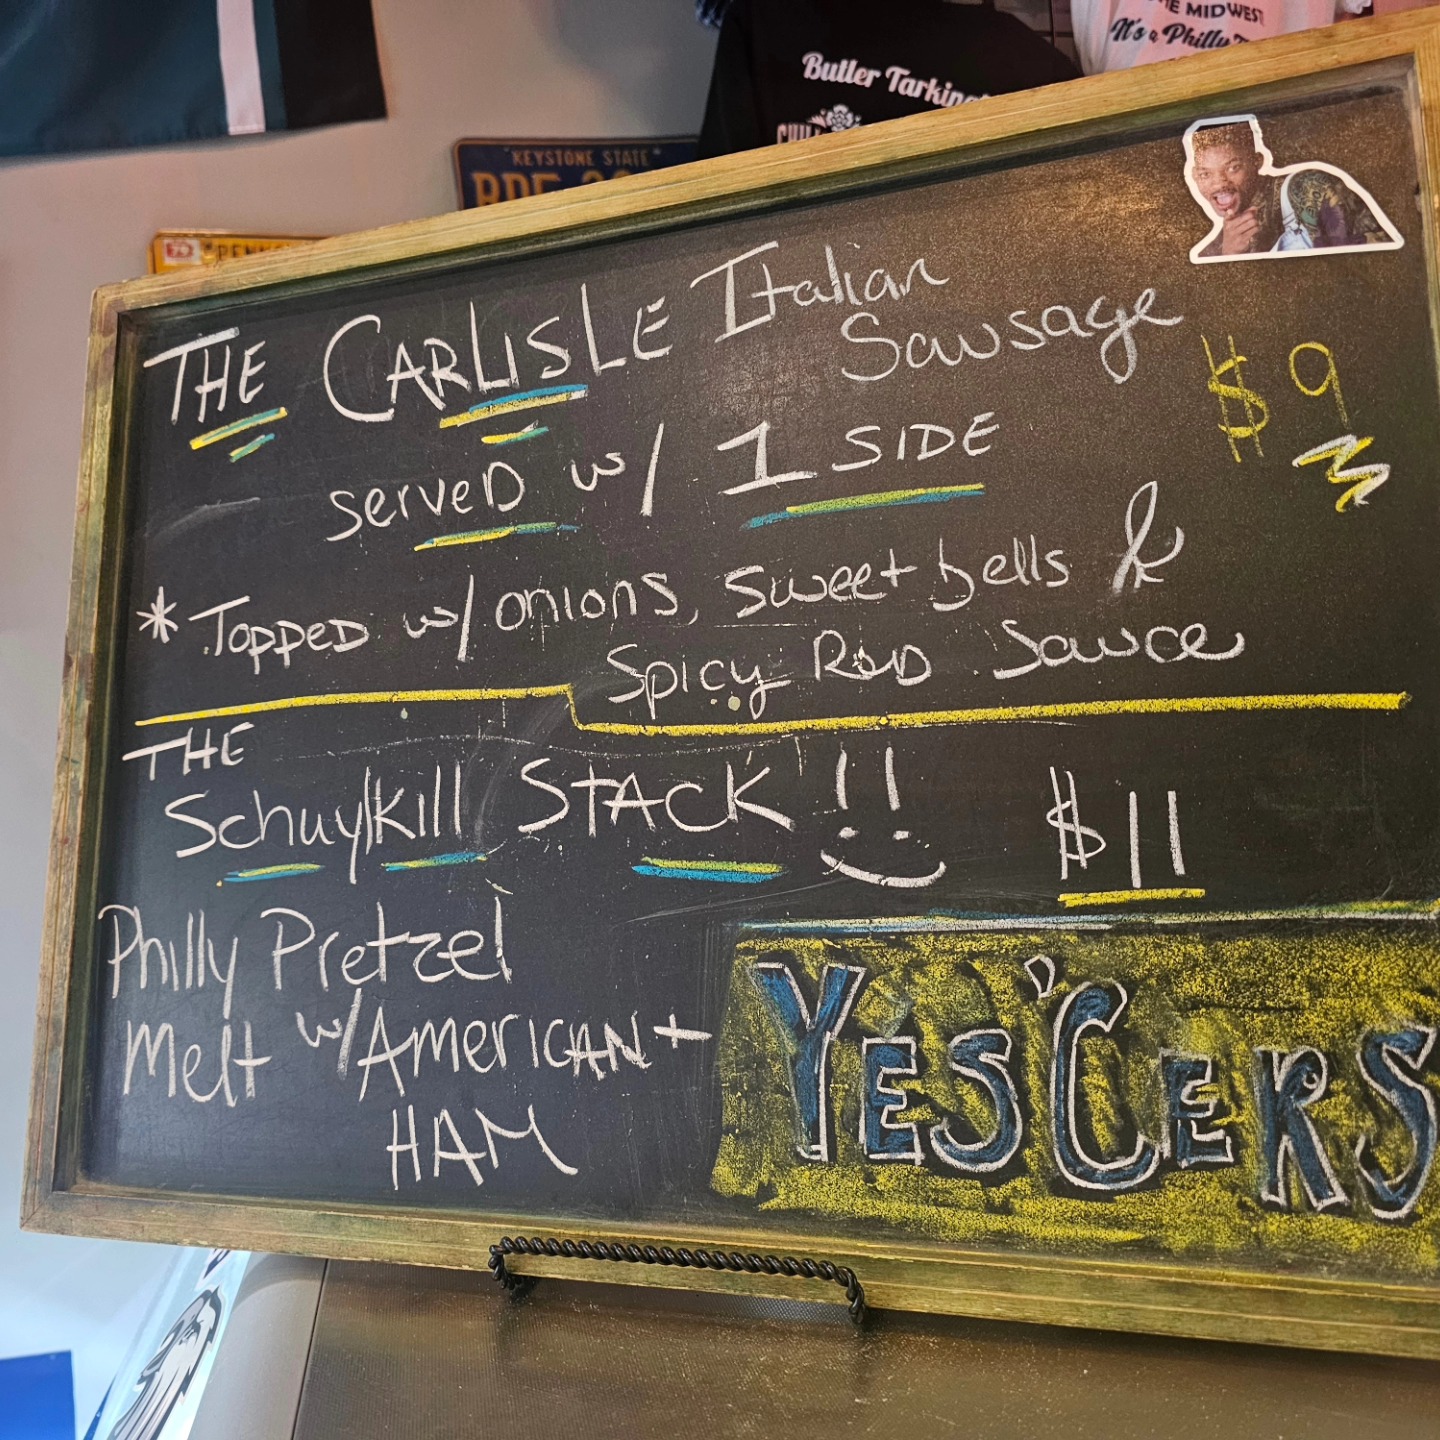 THE MIDWEST
It's a Philly
Butler Tarking
KEYSTONE STATE
PENN
THE CARLISLE Italian
Sausage
$9
serveD w/ 1 SIDE
* Topped w/ onions, sweet bells &
Spicy Red Sauce
THE
Schuylkill STACK !! $11
Philly Pretzel
Melt w/ American +
HAM
YES 'CERS